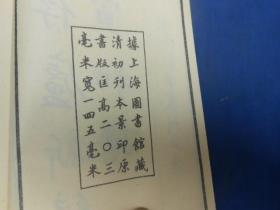 據上海圖書館藏
清初刊本景印原
書版匡高二〇三
毫米寬一四五毫米